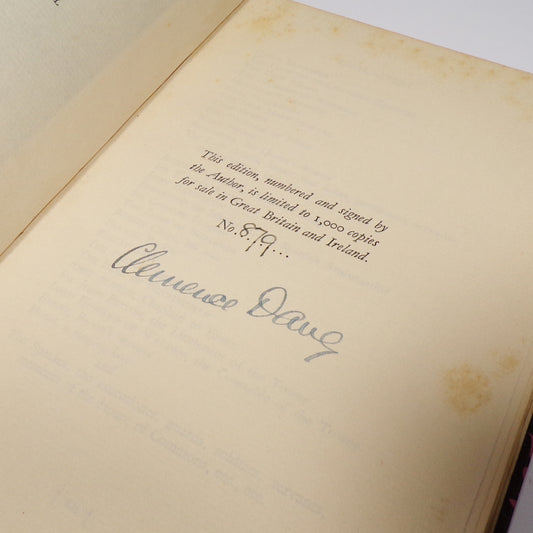 This edition, numbered and signed by
the Author, is limited to 1,000 copies
for sale in Great Britain and Ireland.
No. 879...
Clemence Dane